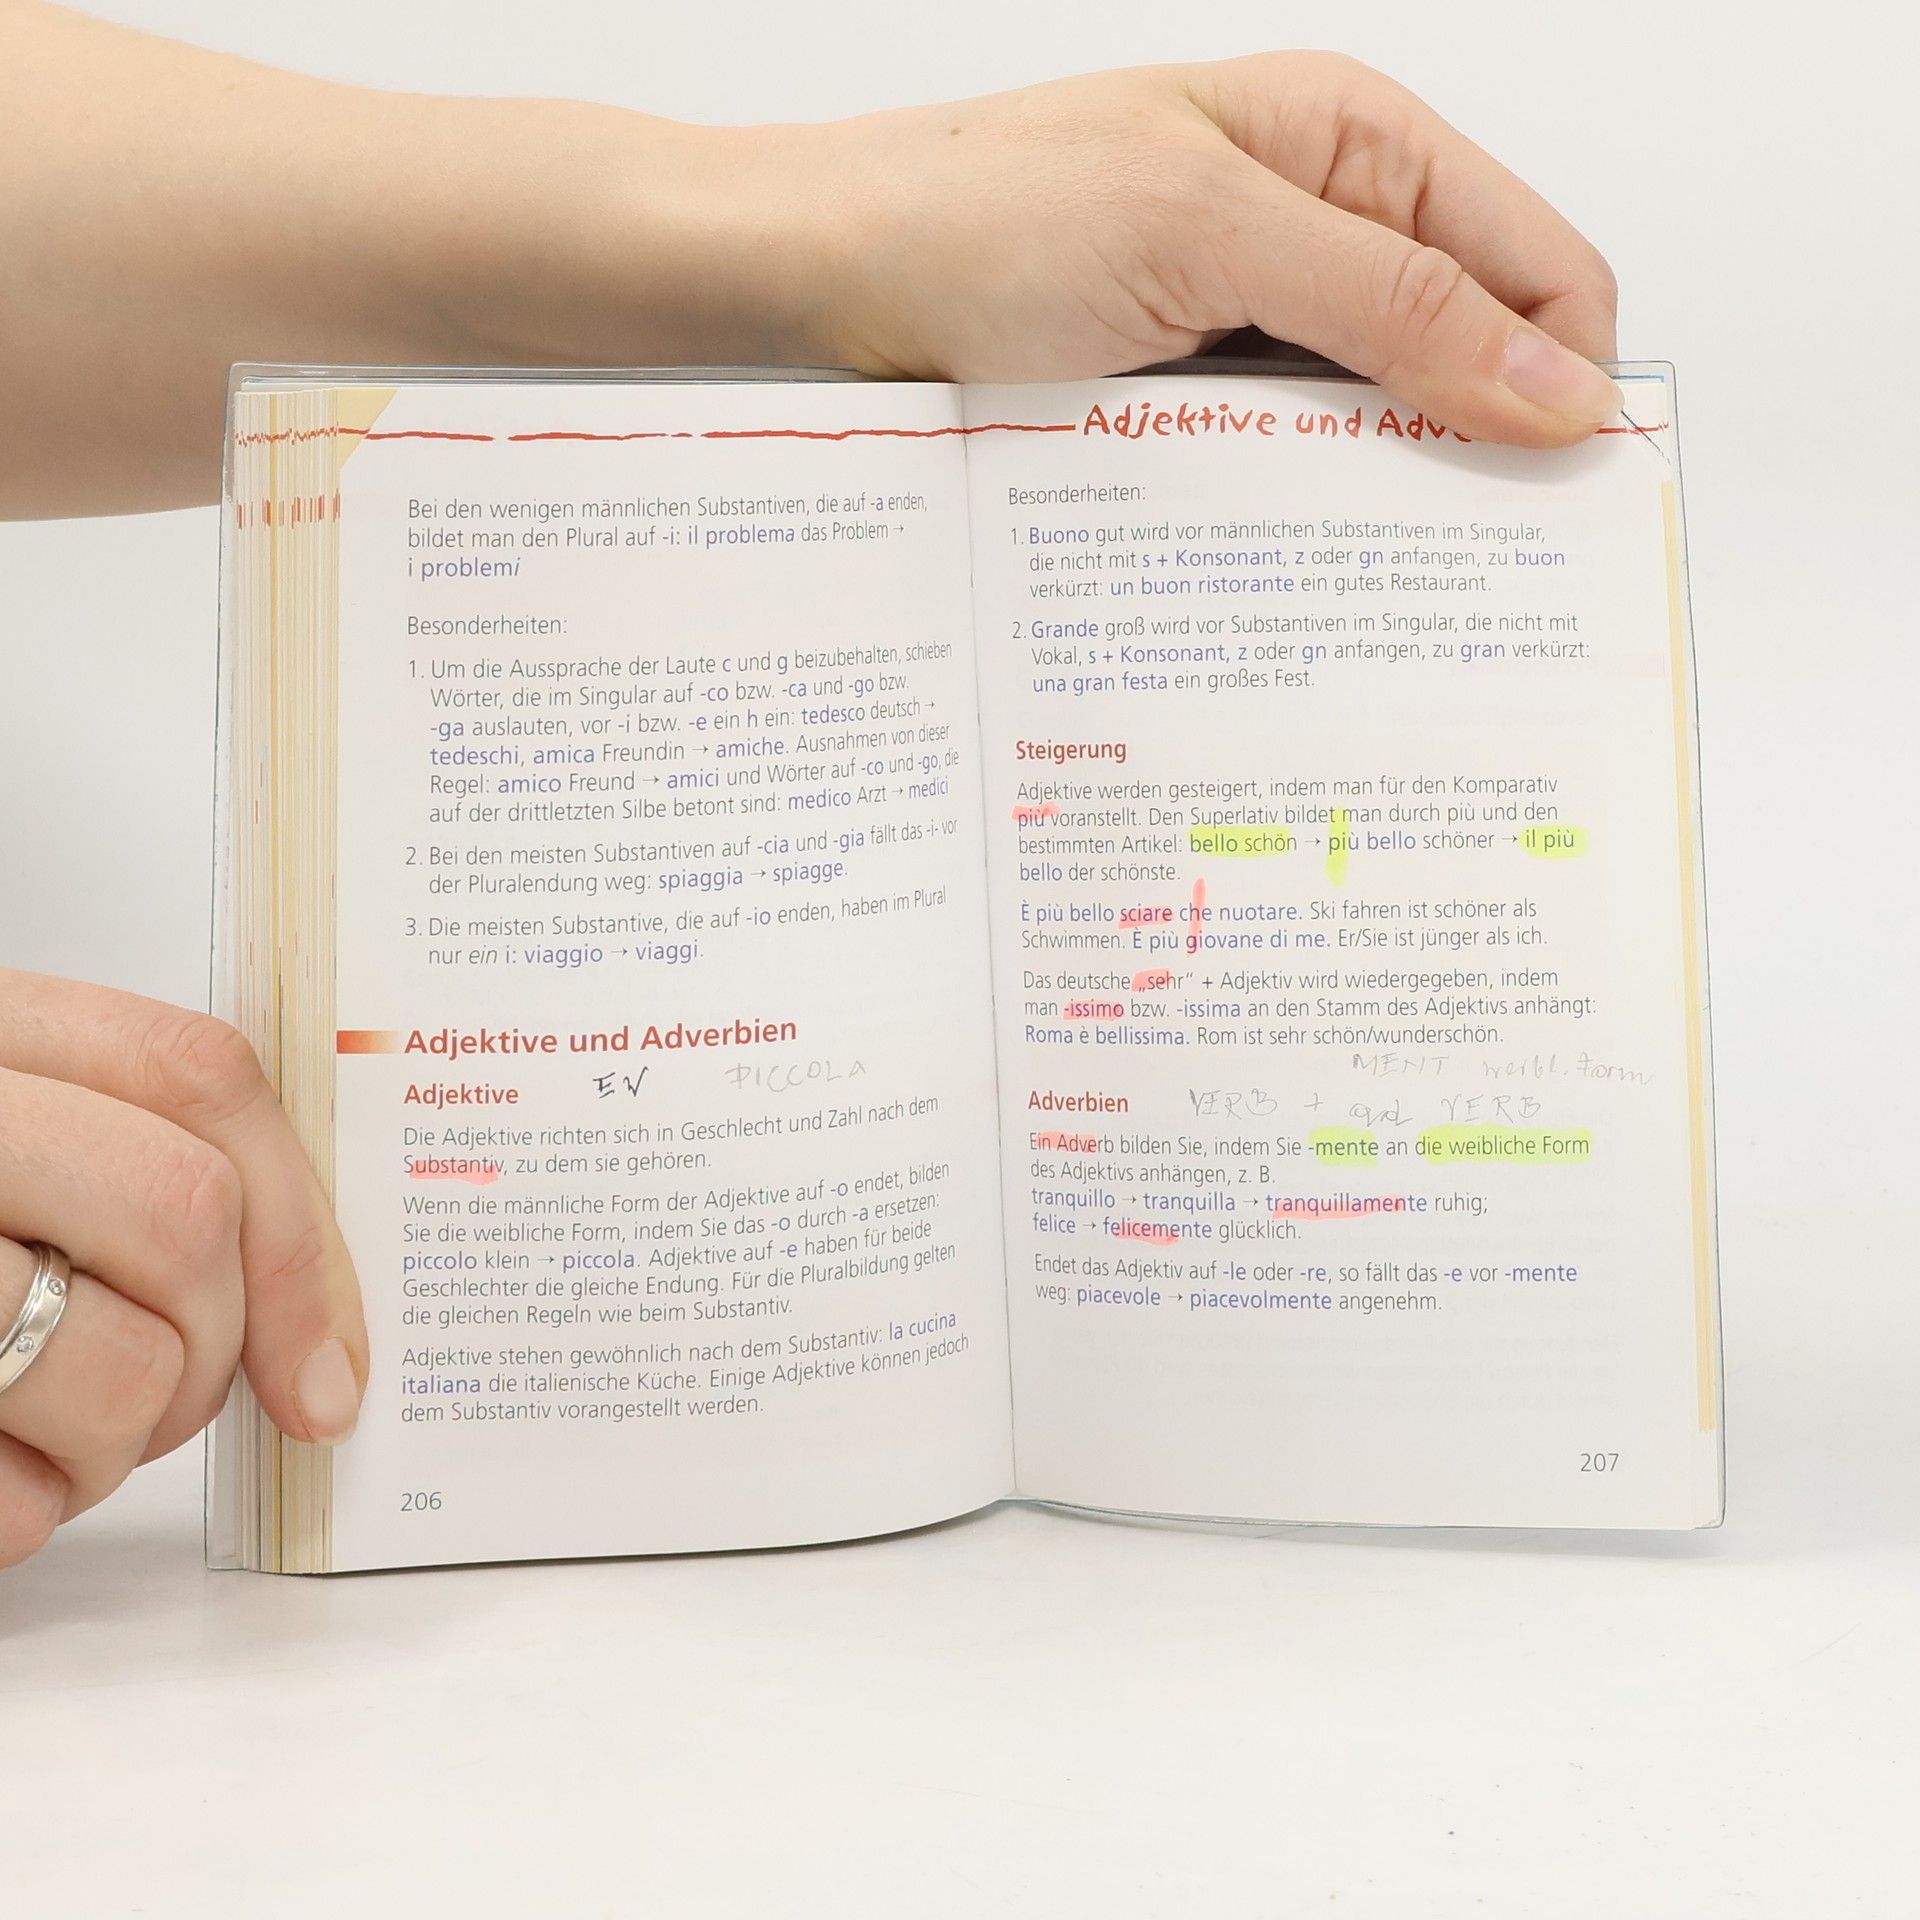 Bei den wenigen männlichen Substantiven, die auf -a enden,
bildet man den Plural auf -i: il problema das Problem →
i problemi
Besonderheiten:
1. Um die Aussprache der Laute c und g beizubehalten, schieben
Wörter, die im Singular auf -co bzw. -ca und -go bzw.
-ga auslauten, vor -i bzw. -e ein h ein: tedesco deutsch →
tedeschi, amica Freundin → amiche. Ausnahmen von dieser
Regel: amico Freund → amici und Wörter auf -co und -go, die
auf der drittletzten Silbe betont sind: medico Arzt → medici
2. Bei den meisten Substantiven auf -cia und -gia fällt das -i- vor
der Pluralendung weg: spiaggia → spiagge.
3. Die meisten Substantive, die auf -io enden, haben im Plural
nur ein i: viaggio → viaggi.
Adjektive und Adverbien
Adjektive EW PICCOLA
Die Adjektive richten sich in Geschlecht und Zahl nach dem
Substantiv, zu dem sie gehören.
Wenn die männliche Form der Adjektive auf -o endet, bilden
Sie die weibliche Form, indem Sie das -o durch -a ersetzen:
piccolo klein → piccola. Adjektive auf -e haben für beide
Geschlechter die gleiche Endung. Für die Pluralbildung gelten
die gleichen Regeln wie beim Substantiv.
Adjektive stehen gewöhnlich nach dem Substantiv: la cucina
italiana die italienische Küche. Einige Adjektive können jedoch
dem Substantiv vorangestellt werden.
206
Adjektive und Adve
Besonderheiten:
1. Buono gut wird vor männlichen Substantiven im Singular,
die nicht mit s + Konsonant, z oder gn anfangen, zu buon
verkürzt: un buon ristorante ein gutes Restaurant.
2. Grande groß wird vor Substantiven im Singular, die nicht mit
Vokal, s + Konsonant, z oder gn anfangen, zu gran verkürzt:
una gran festa ein großes Fest.
Steigerung
Adjektive werden gesteigert, indem man für den Komparativ
più voranstellt. Den Superlativ bildet man durch più und den
bestimmten Artikel: bello schön → più bello schöner → il più
bello der schönste.
È più bello sciare che nuotare. Ski fahren ist schöner als
Schwimmen. È più giovane di me. Er/Sie ist jünger als ich.
Das deutsche „sehr“ + Adjektiv wird wiedergegeben, indem
man -issimo bzw. -issima an den Stamm des Adjektivs anhängt:
Roma è bellissima. Rom ist sehr schön/wunderschön.
MENT weibl. Form
Adverbien VERB + VERB
Ein Adverb bilden Sie, indem Sie -mente an die weibliche Form
des Adjektivs anhängen, z. B.
tranquillo → tranquilla → tranquillamente ruhig;
felice → felicemente glücklich.
Endet das Adjektiv auf -le oder -re, so fällt das -e vor -mente
weg: piacevole → piacevolmente angenehm.
207